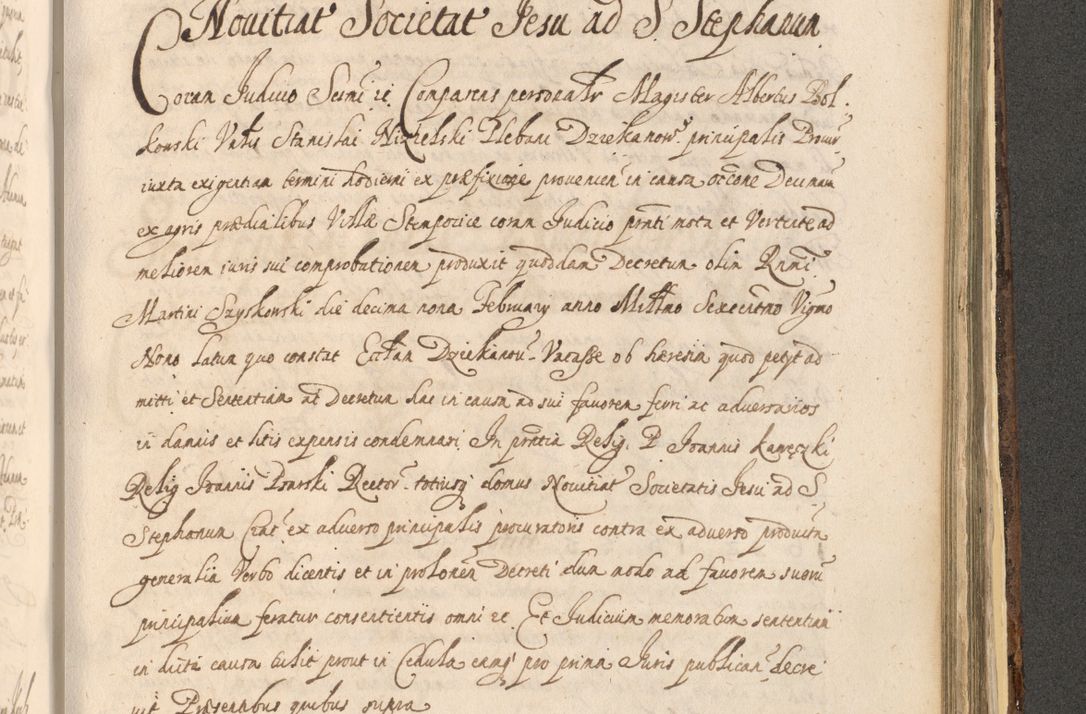 Novitiat Societat Jesu ad S. Stephanum
Coram Judicio Sermi ic Comparens personalr Magister Albertus Bol
kowski Vnlis Stanislai Nizielski Plebani Dziekanow. principalis Procur
iuxta exigentiam termini hodierni ex præfixione provenien in causa occone Decimarum
ex agris prædialibus Villæ Stempocice coram Judicio pnti mota et Vertente ad
meliorem iuris sui comprobationem produxit quoddam Decretum olim Rndmi
Martini Szyskowski die decima nona February anno Millmo Sexcentmo Vigmo
Nono latum quo constat Eccl̃am Dziekanow. Vacasse ob hæresim quod petyt ad
mitti et Sententiam ac Decretum hac in causa ad sui favorem ferri ac adversarios
in damnis et litis expensis condemnari. In pntia Relig. P Joannis Kanęczki
Relig Joannis Psarski Rector. totiusq domus Novitiat Societatis Jesu ad S
Stephanum Crac ex adverso principalis procuratoris contra ex adverso producta
generalia Verbo dicentis et in prolonem Decreti dum modo ad favorem suorum
principalium feratur consentientis omni et Et Judicium memoratum sententiam
in dicta causa tulit prout in Cedula eamq pro prima Juris publican decre
vit Præsentibus quibus supra